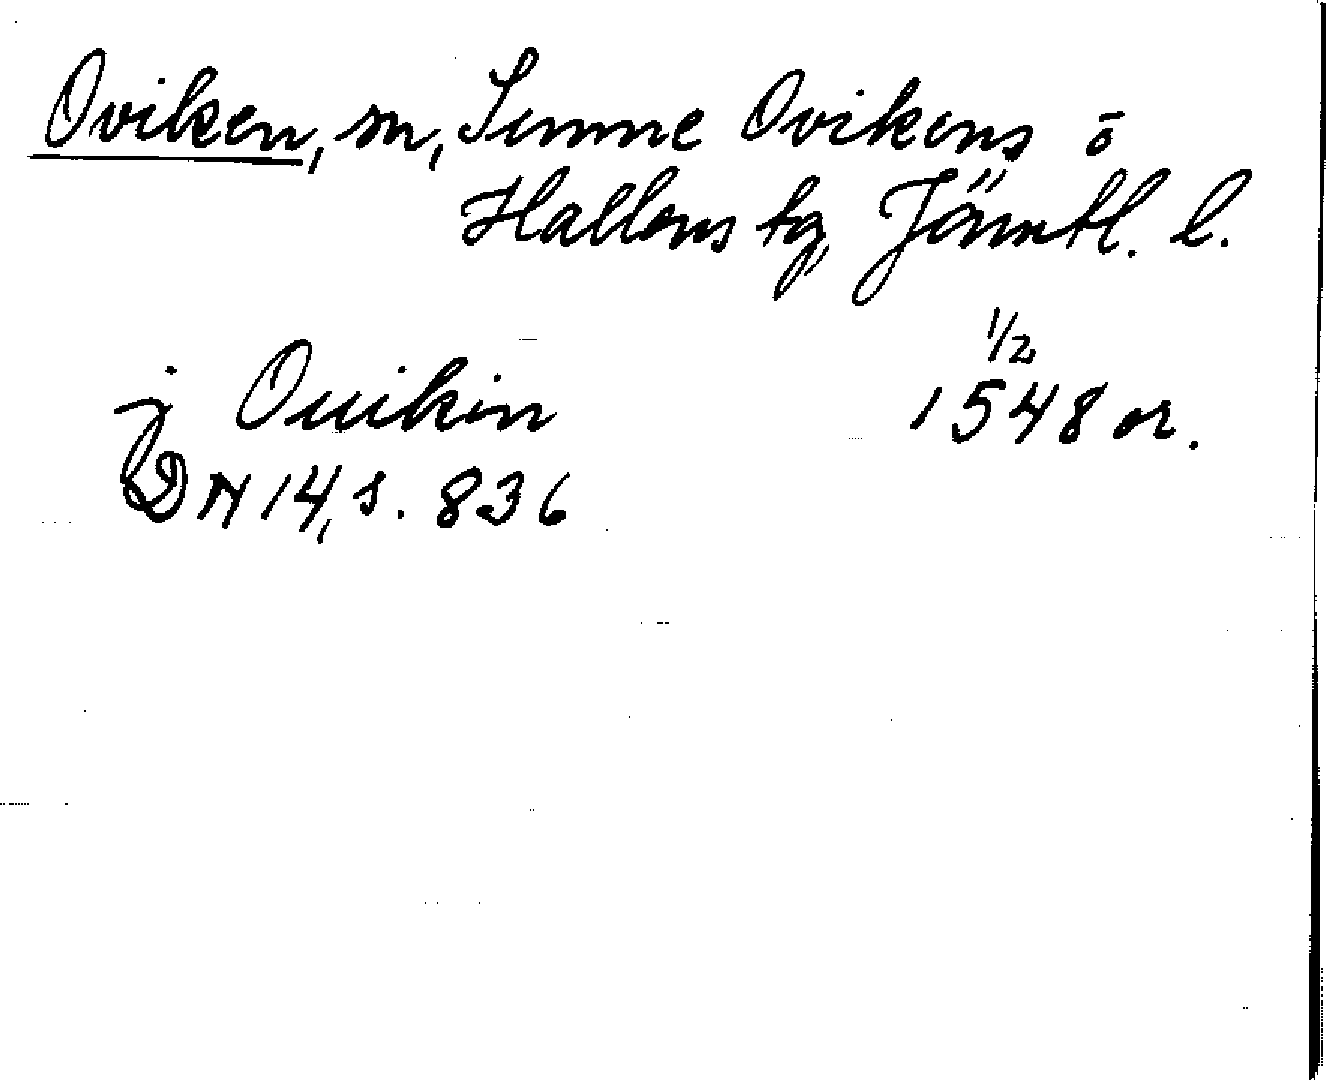 Oviken, sn, Sunne Ovikens o
Hallens tg, Jämtl. l.
1/2
j Ouikin 1548 or.
DN 14, s. 836